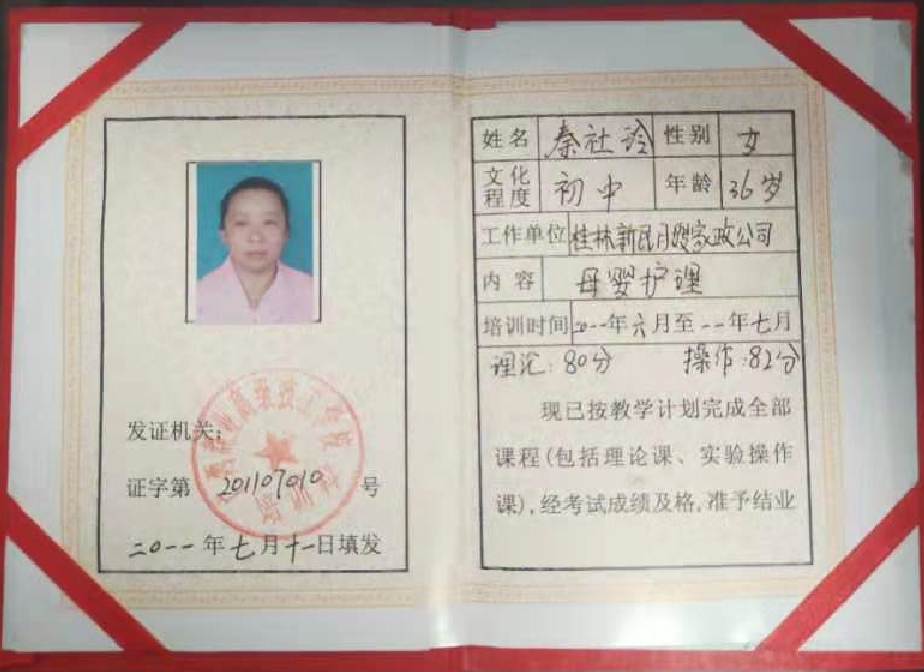 发证机关:
证字第 201107010 号
二〇一一年七月十一日填发
培训科
姓名 秦社玲 性别 女
文化程度 初中 年龄 36岁
工作单位 桂林新民月嫂家政公司
内容 母婴护理
培训时间 二〇一一年六月至一一年七月
理论:80分 操作:82分
现已按教学计划完成全部
课程(包括理论课、实验操作
课),经考试成绩及格,准予结业